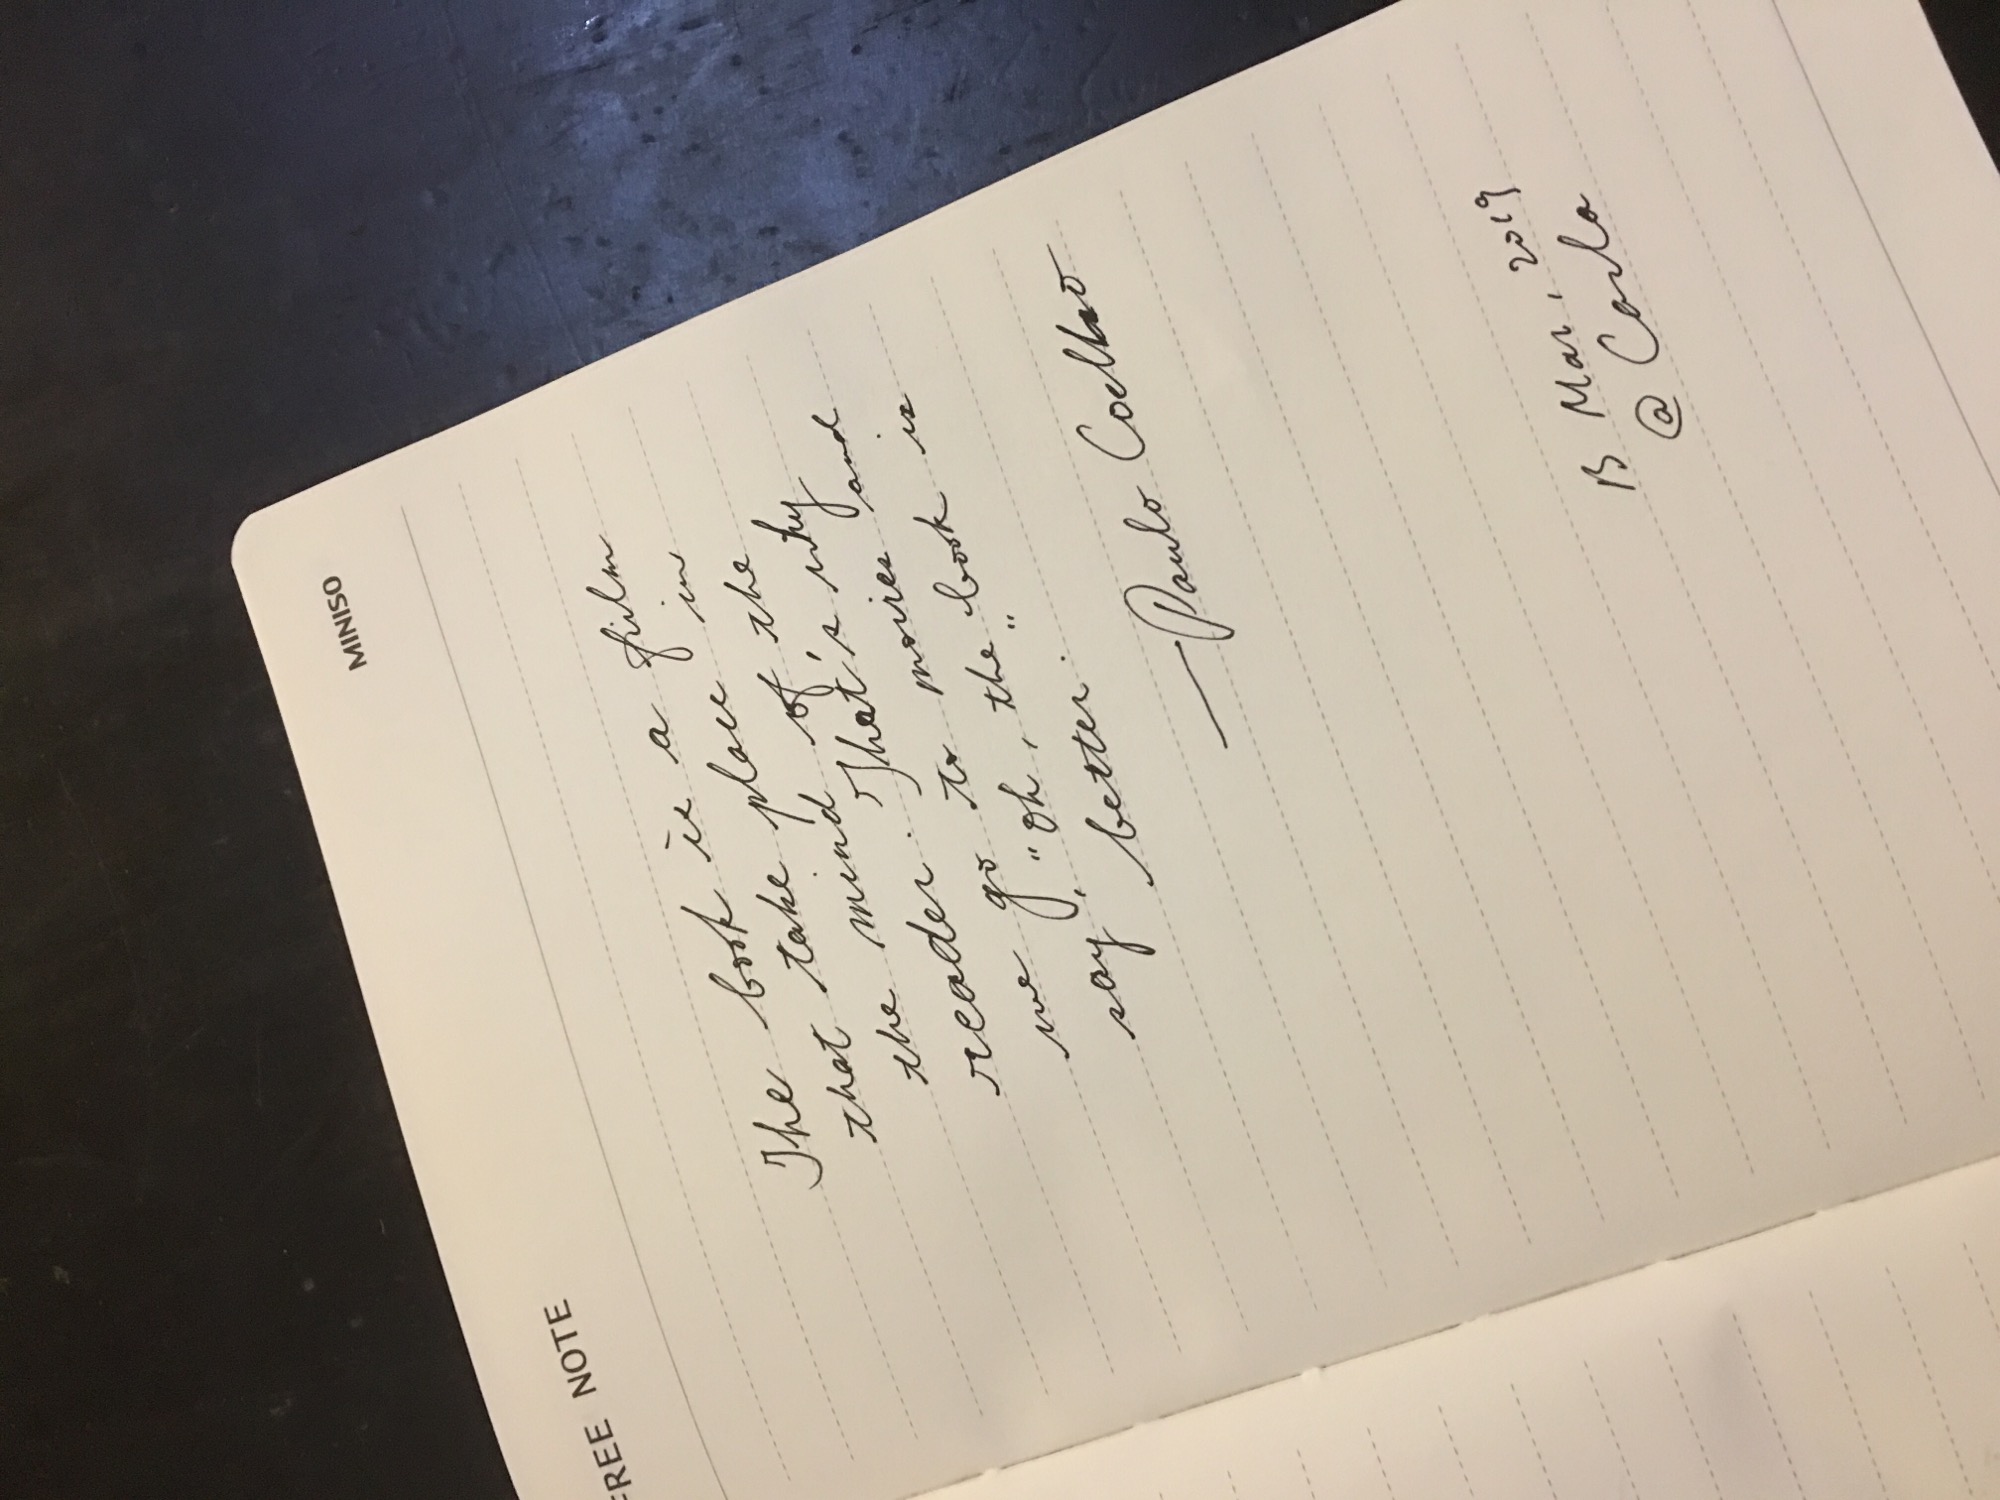 FREE NOTE
MINISO
The book is a film
that take place in
the mind of the
reader. That's why
we go to movies and
say, "oh, the book is
better."
—Paulo Coelho
13 Mar, 2019
@ Carlo